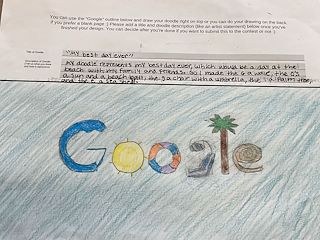 You can use the "Google" outline below and draw your doodle right on top or you can do your drawing on the back
if you prefer a blank page :) Please add a title and doodle description (like an artist statement) below once you've
finished your design. You can decide after you're done if you want to submit this to the contest or not :)
Title of Doodle:
"My best day ever!"
My doodle represents my best day ever, which would be a day at the
beach with my family and friends. So I made the G a wave, the O's
a sun and a beach ball, the g a chair with a umbrella, the l a Palm tree,
and the e a sea shell.
Google